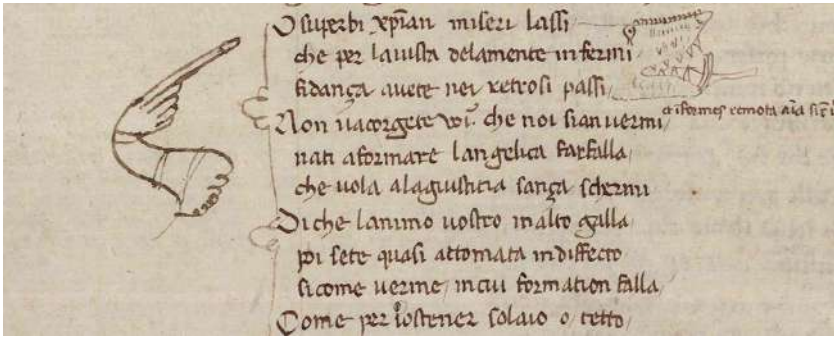 O superbi xp̄ian miseri lassi
che per lauista delamente infermi
fidança auete nei retrosi passi
Non uacorgete uoi che noi sian uermi
nati aformare langelica farfalla
che uola alagiustitia sança schermi
Di che lanimo uostro inalto galla
poi sete quasi attomata indiffecto
si come uerme in cui formation falla
Come per sostener solaio o tetto